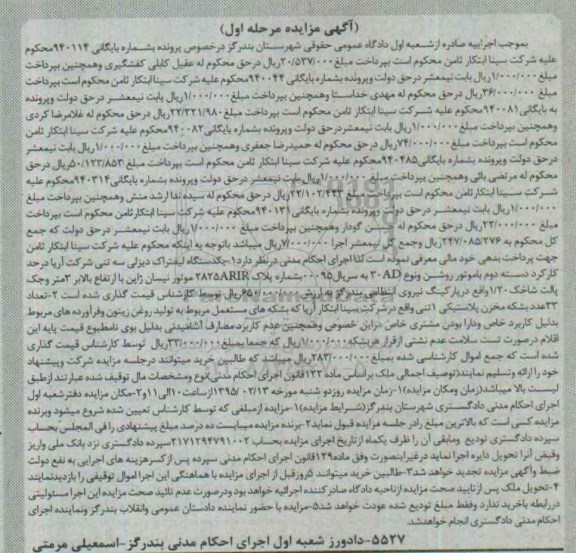 (آگهی مزایده مرحله اول)
بموجب اجراییه صادره ازشعبه اول دادگاه عمومی حقوقی شهرستان بندرگز درخصوص پرونده بشماره بایگانی ۹۴۰۱۱۴محکوم
علیه شرکت سینا ابتکار ثامن محکوم است بپرداخت مبلغ۳۰/۵۳۷/۰۰۰ریال درحق محکوم له عقیل کابلی کفشگیری وهمچنین بپرداخت
مبلغ ۱/۰۰۰/۰۰۰ریال بابت نیمعشر در حق دولت وپرونده بشماره بایگانی ۹۴۰۰۴۴محکوم علیه شرکت سیناابتکار ثامن محکوم است بپرداخت
مبلغ ۳۶/۰۰۰/۰۰۰ریال درحق محکوم له مهدی خداستا وهمچنین بپرداخت مبلغ۱/۰۰۰/۰۰۰ریال بابت نیمعشر در حق دولت وپرونده
به بایگانی۹۴۰۰۸۱محکوم علیه شرکت سینا ابتکار ثامن محکوم است بپرداخت مبلغ۲۲/۳۲۱/۹۸۰ریال درحق محکوم له غلامرضا کردی
وهمچنین بپرداخت مبلغ ۱/۰۰۰/۰۰۰ریال بابت نیمعشردرحق دولت وپرونده بشماره بایگانی ۹۴۰۰۸۲محکوم علیه شرکت سینا ابتکار ثامن
محکوم است بپرداخت مبلغ ۷۴/۰۰۰/۰۰۰ریال درحق محکوم له حمیدرضا جعفری وهمچنین بپرداخت مبلغ۱/۰۰۰/۰۰۰ریال بابت نیمعشر
درحق دولت وپرونده بشماره بایگانی۹۴۰۴۸۵محکوم علیه شرکت سینا ابتکار ثامن محکوم است بپرداخت مبلغ ۵۰/۱۲۳/۸۵۳ریال درحق
محکوم له مرتضی بائی وهمچنین پرداخت مبلغ ۱/۰۰۰/۰۰۰ریال بابت نیمعشر در حق دولت وپرونده بشماره بایگانی۹۴۰۳۱۴محکوم علیه
شرکت سینا ابتکارثامن محکوم است بپرداخت ۲۲/۱۰۲/۴۴۳ریال درحق محکوم له سیده ندا ارشد منش وهمچنین بپرداخت مبلغ
۱/۰۰۰/۰۰۰ریال بابت نیمعشر درحق دولت وپرونده بشماره بایگانی ۹۴۰۱۳۱محکوم علیه شرکت سینا ابتکارثامن محکوم است بپرداخت
مبلغ ۲۲/۰۰۰/۰۰۰ریال درحق محکوم له گودار وهمچنین بپرداخت مبلغ ۱/۰۰۰/۰۰۰ریال بابت نیمعشر درحق دولت که جمع
کل محکوم به ۲۴۷/۰۸۵/۲۷۶ریال وجمع کل نیمعشر اجرا ۷/۰۰۰/۰۰۰ریال میباشد باتوجه به اینکه محکوم علیه شرکت سینا ابتکار ثامن
جهت پرداخت بدهی خود مالی معرفی ننموده است لذا اجرای احکام مدنی درنظر دارد۱-یکدستگاه لیفتراک دیزلی سه تنی شرکت آریا درحد
کارکرد دسته دوم باموتور روشن ونوع ۳۰AD به سریال۰۰۰۹۵شماره پلاک ۲۸۲۵ARIR موتور نیسان ژاپن با ارتفاع بالابر ۳متر وچک
پالت شاخک۱/۲۰واقع درپارکینگ نیروی انتظامی بندرگز به ارزش ۲۵۰/۰۰۰/۰۰۰ریال توسط کارشناس قیمت گذاری شده است ۲-تعداد
۳۳عدد بشکه مخزن پلاستیکی ۱تنی واقع درشرکت سینا ابتکار آریا که بشکه های مستعمل مربوط به تولید روغن زیتون وفرآورده های مربوط
بدلیل کاربرد خاص ودارا بودن مشتری خاص دراین خصوص وهمچنین عدم کاربردمصارف آشامیدنی بدلیل بوی نامطبوع قیمت پایه این
اقلام درصورت تست سلامت عدم نشتی ازقرار هربشکه۱/۰۰۰/۰۰۰ریال که جمعا بمبلغ ۳۳/۰۰۰/۰۰۰ریال توسط کارشناس قیمت گذاری
شده است که جمع اموال کارشناسی شده بمبلغ ۲۸۳/۰۰۰/۰۰۰ریال میباشد که طالبین خرید میتوانند درجلسه مزایده شرکت وپیشنهاد
خود را ارائه وتسلیم نمایند(توصیف اجمالی ملک براساس ماده ۱۲۲قانون اجرای احکام مدنی)نوع ومشخصات مال توقیف شده عبارتند ازطبق
لیست بالا میباشد(زمان ومکان مزایده)۱-زمان مزایده روزدو شنبه مورخه ۱۳۹۵/۰۲/۱۳ازساعت۱۰الی۱۱و۲-مکان مزایده دفترشعبه اول
اجرای احکام مدنی دادگستری شهرستان بندرگز(شرایط مزایده)۱-مزایده ازمبلغی که توسط کارشناس تعیین شده شروع میشود وبرنده
مزایده کسی است که بالاترین مبلغ رادر جلسه مزایده قبول نماید۲-برنده مزایده میبایست ده درصد مبلغ پیشنهادی را فی المجلس بحساب
سپرده دادگستری تودیع ومابقی آن را ظرف یکماه ازتاریخ اجرای مزایده بحساب ۲۱۷۱۲۹۴۷۹۱۰۰۲سپرده دادگستری نزد بانک ملی واریز
وقبض آنرا تحویل دایره اجرا نماید درغیراینصورت وفق ماده۱۲۹قانون اجرای احکام مدنی سپرده پس ازکسرهزینه های اجرایی به نفع دولت
ضبط وآگهی مزایده تجدید خواهد شد۳-طالبین خرید میتوانند ۵روزقبل از اجرای مزایده با هماهنگی این اجرا اموال توقیفی را بازدیدنمایند
۴-تحویل ملک پس ازتایید صحت مزایده ازناحیه دادگاه صادرکننده اجرائیه خواهد بود ودرصورت عدم تائید صحت مزایده این اجرا مسئولیتی
دررابطه باخرید ندارد وفقط مبلغ تودیع شده عودت خواهد شد۵-مزایده با حضور نماینده دادستان عمومی وانقلاب بندرگز ونماینده اجرای
احکام مدنی دادگستری انجام خواهدشد.
۵۵۲۷-دادورز شعبه اول اجرای احکام مدنی بندرگز-اسمعیلی مرمتی